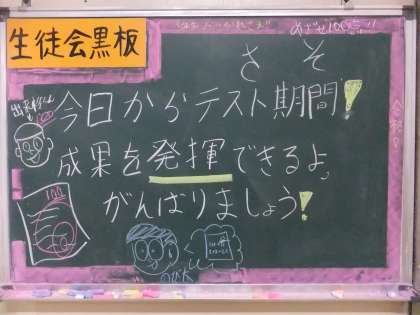 生徒会黒板
めざせ100点!!
さ そ
今日からテスト期間!
成果を発揮できるよ、
がんばりましょう!
100
のび太